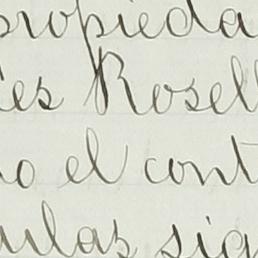 ropieda
es Rosell
o el cont
ulas sig